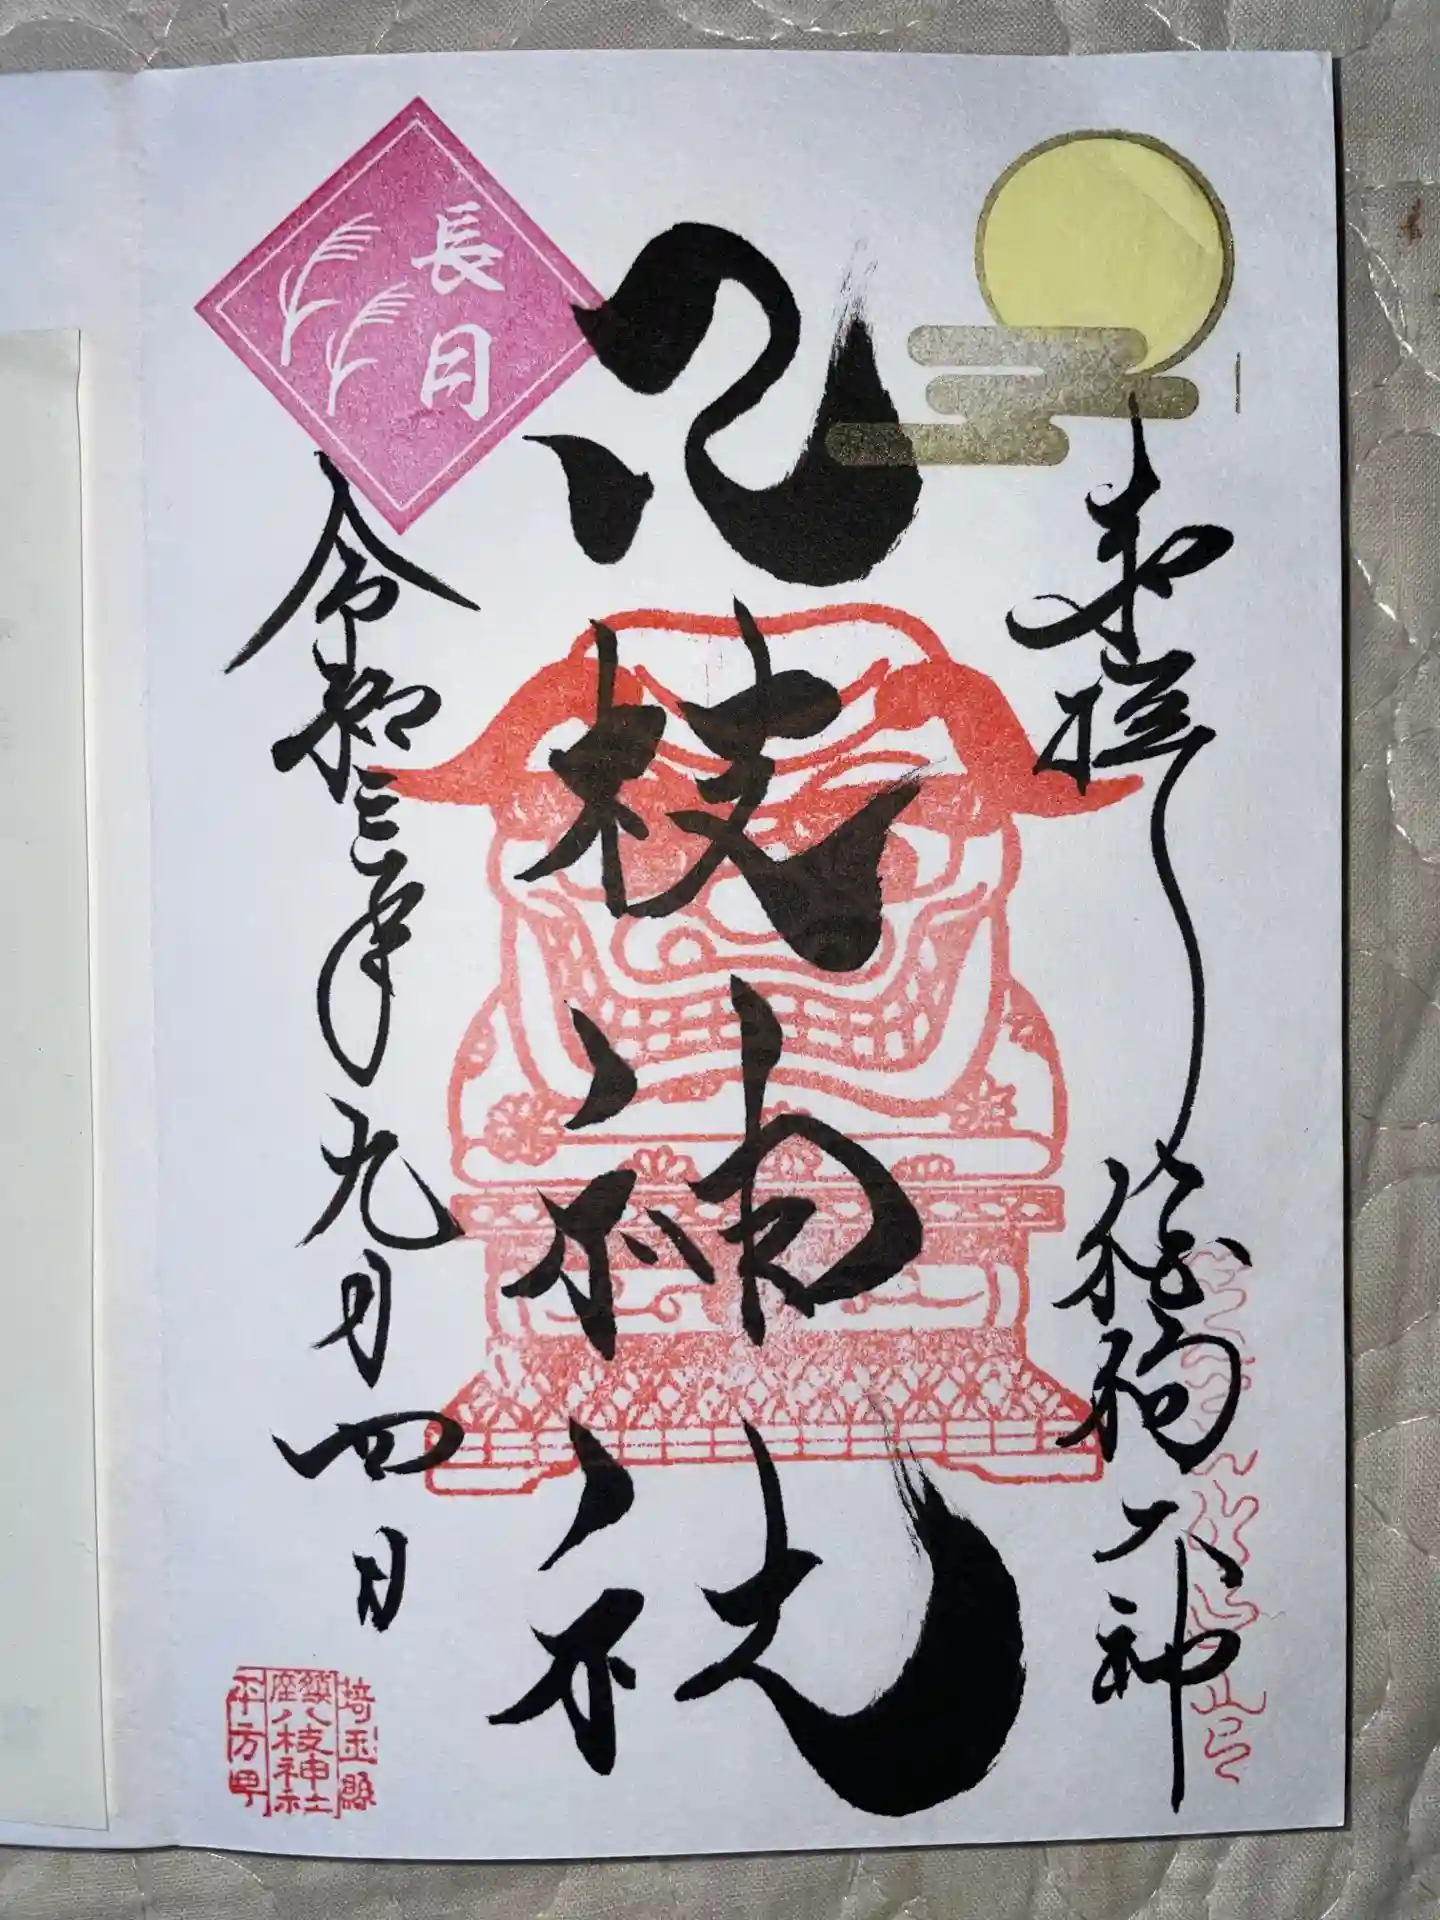 奉拝 狛狗大神
八枝神社
長月
令和三年九月四日
埼玉縣
鎮座八枝神社
平方町